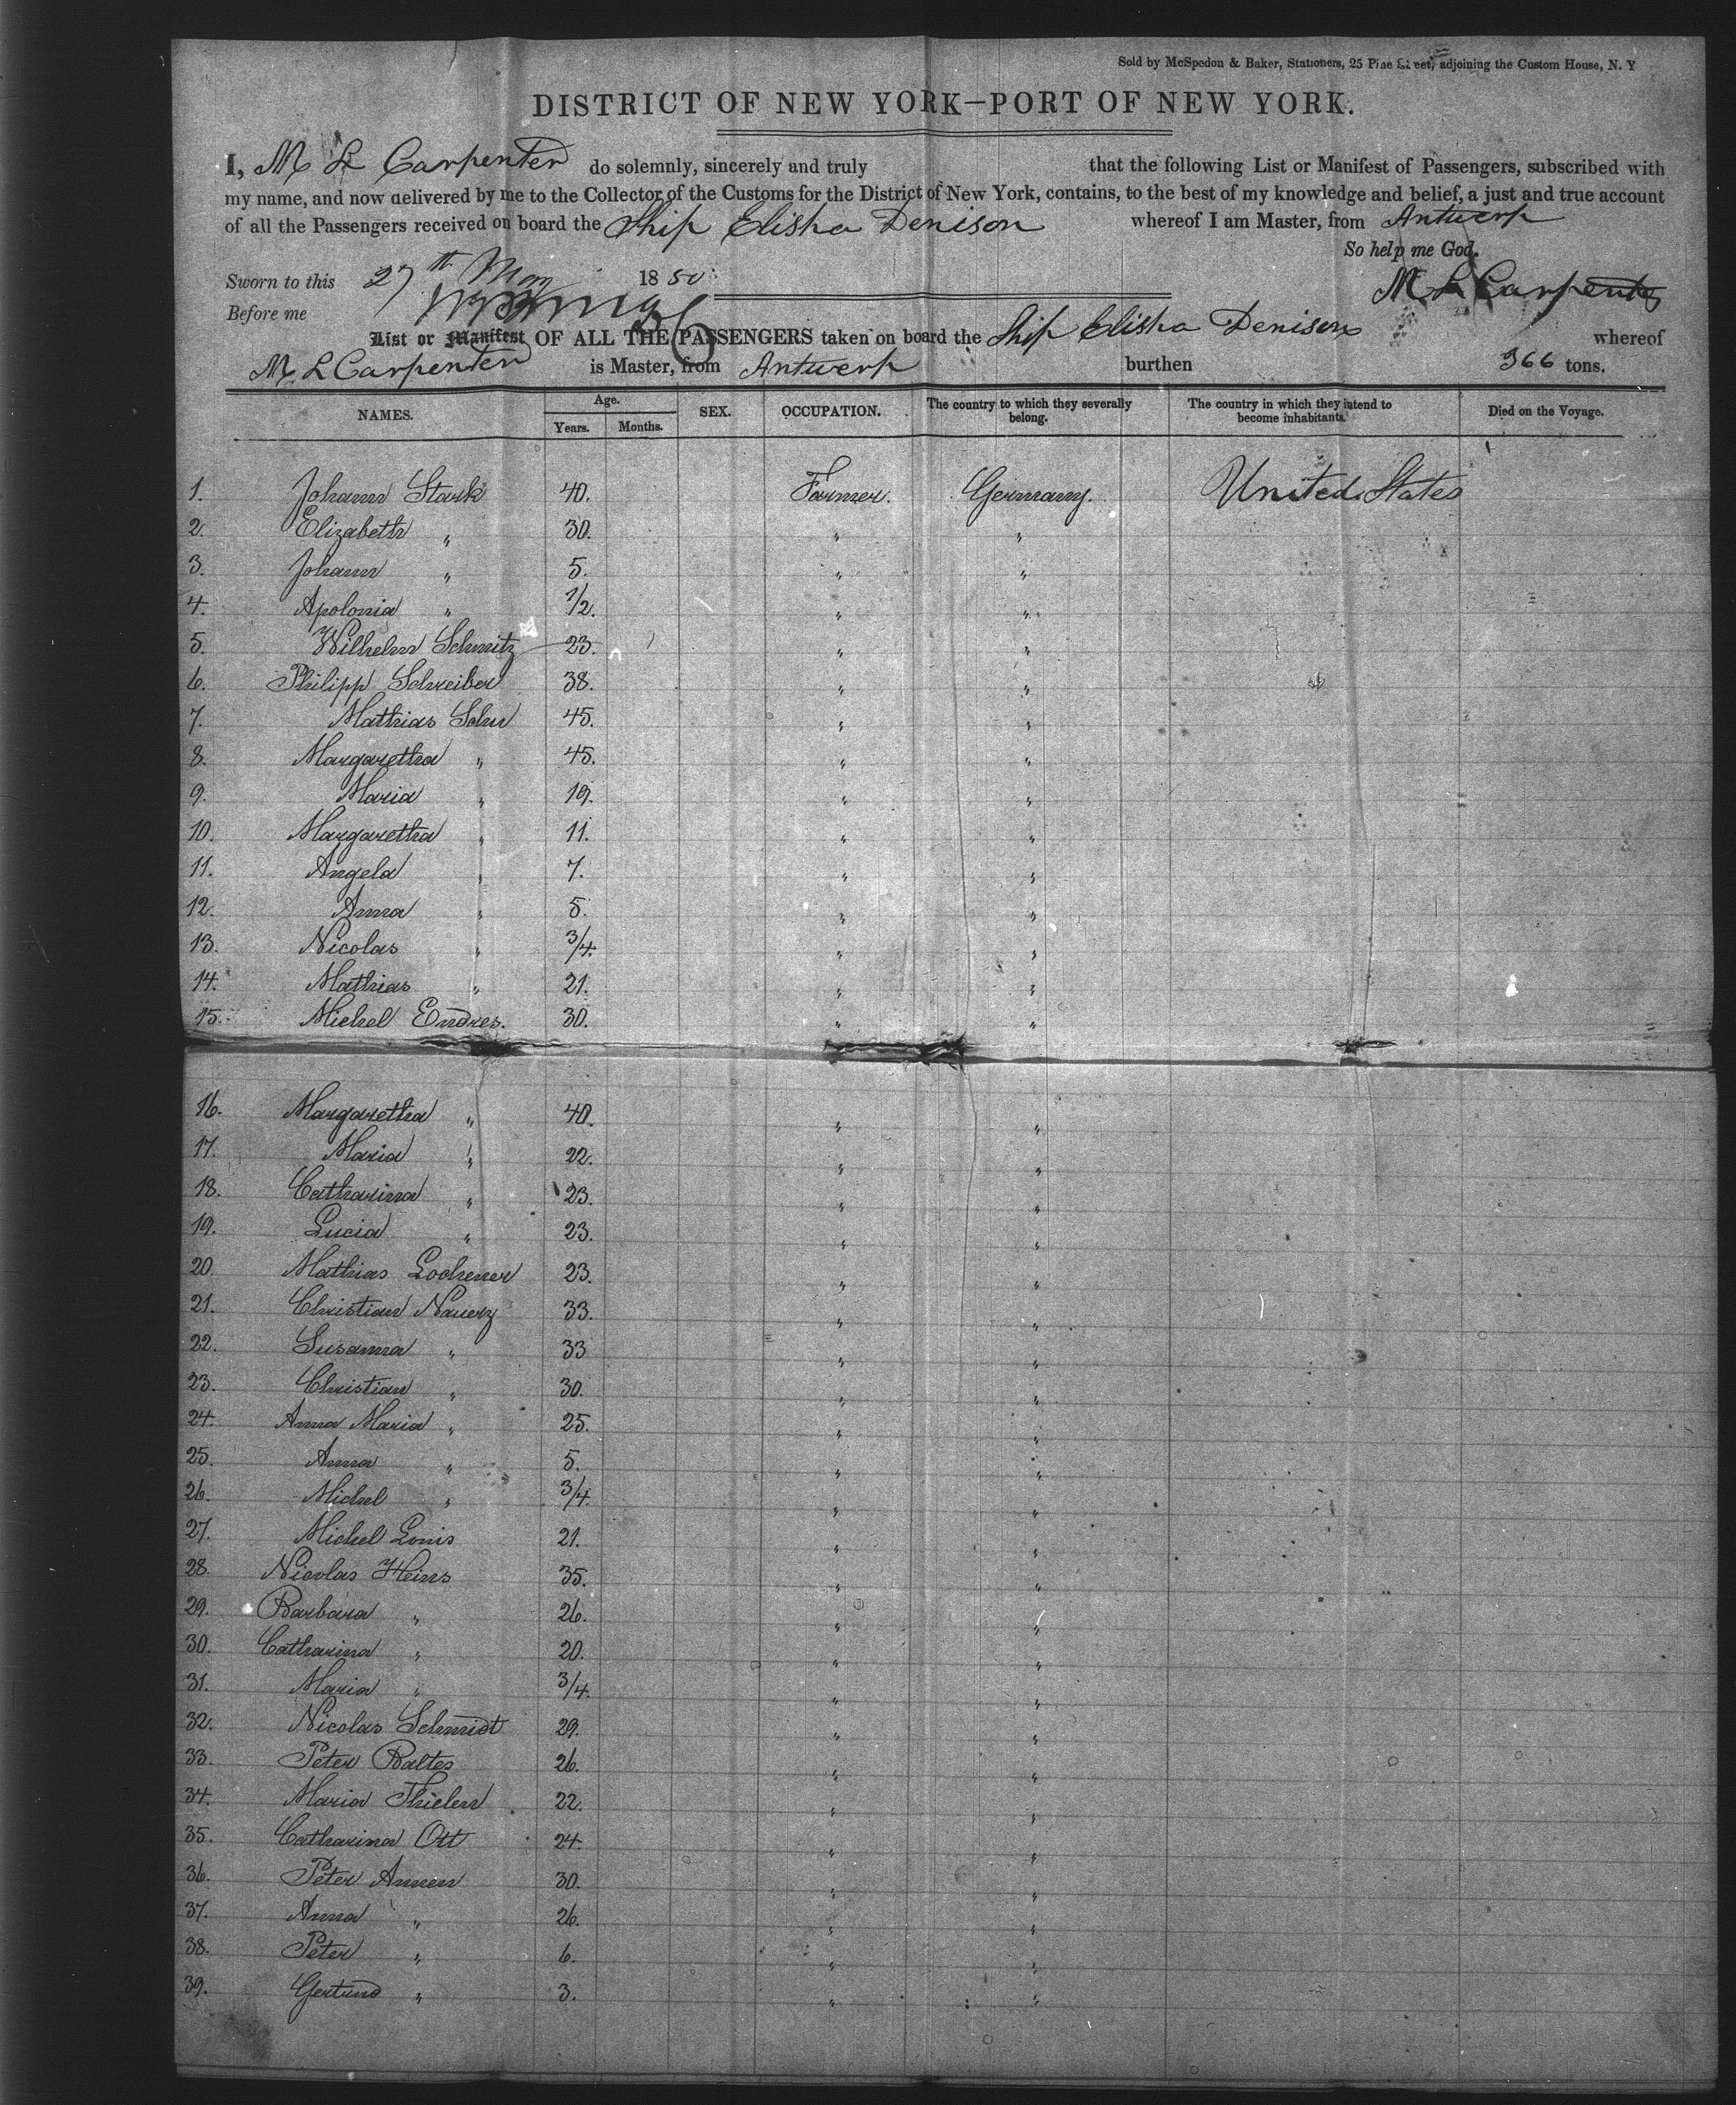 Sold by McSpedon & Baker, Stationers, 25 Pine Street, adjoining the Custom House, N. Y
DISTRICT OF NEW YORK—PORT OF NEW YORK.
I, M L Carpenter do solemnly, sincerely and truly that the following List or Manifest of Passengers, subscribed with
my name, and now delivered by me to the Collector of the Customs for the District of New York, contains, to the best of my knowledge and belief, a just and true account
of all the Passengers received on board the Ship Elisha Denison whereof I am Master, from Antwerp
So help me God.
Sworn to this 27th May 1850 M L Carpenter
Before me
List or Manifest OF ALL THE PASSENGERS taken on board the Ship Elisha Denison whereof
M. L Carpenter is Master, from Antwerp burthen 366 tons.
NAMES. Age. Years. Months. SEX. OCCUPATION. The country to which they severally belong. The country in which they intend to become inhabitants. Died on the Voyage.
1. Johann Stark 40. Farmer. Germany. United States
2. Elizabeth " 30. " "
3. Johann " 5. " "
4. Apolonia " 1/2. " "
5. Wilhelm Schmitz 23. " "
6. Philipp Schreiber 38. " "
7. Mathias Schu 45. " "
8. Margaretha " 45. " "
9. Maria " 19. " "
10. Margaretha " 11. " "
11. Angela " 7. " "
12. Anna " 5. " "
13. Nicolas " 3/4. " "
14. Mathias " 21. " "
15. Michel Endres. 30. " "
16. Margaretha " 40. " "
17. Maria " 22. " "
18. Catharina " 23. " "
19. Lucia " 23. " "
20. Mathias Lochener 23. " "
21. Christian Nauerz 33. " "
22. Susanna " 33 " "
23. Christian " 30. " "
24. Anna Maria " 25. " "
25. Anna " 5. " "
26. Michel " 3/4. " "
27. Michel Louis 21. " "
28. Nicolas Heins 35. " "
29. Barbara " 26. " "
30. Catharina " 20. " "
31. Maria " 3/4. " "
32. Nicolas Schmidt 29. " "
33. Peter Baltes 26. " "
34. Maria Thielen 22. " "
35. Catharina Ott 24. " "
36. Peter Annen 30. " "
37. Anna " 26. " "
38. Peter " 6. " "
39. Gertrud " 3. " "